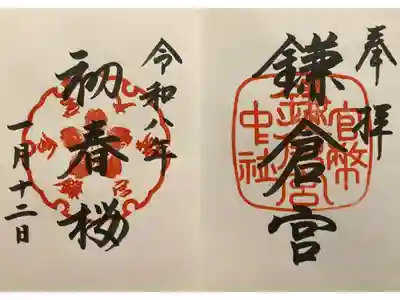 奉拝
鎌倉宮
官幣
中社
令和八年
初春桜
一月十二日